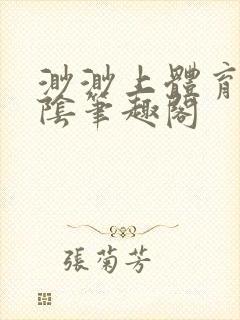 渺渺上體育
陰筆趣閣
張菊芳